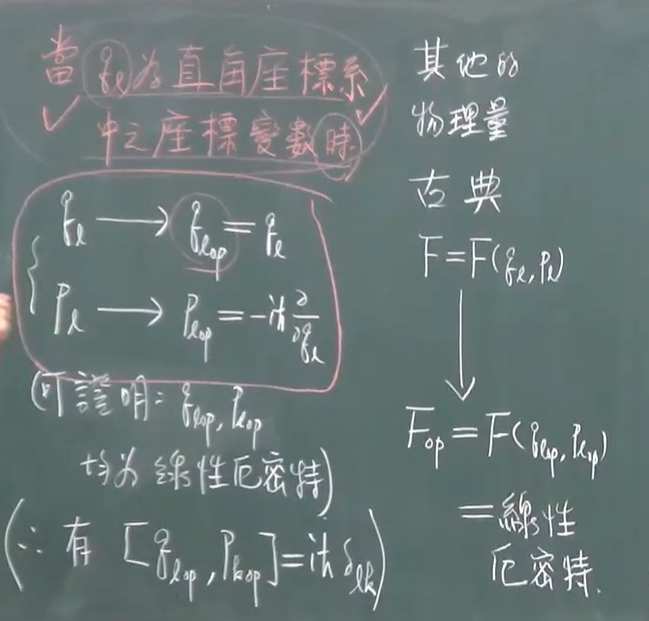 當 qℓ 為直角座標系
中之座標變數時
qℓ → qℓop = qℓ
Pℓ → Pℓop = -iħ ∂/∂qℓ
(可證明: qℓop, Pℓop
均為線性厄密特)
(∴ 有 [qℓop, Pkop] = iħ δℓk)
其他的
物理量
古典
F = F(qℓ, Pℓ)
↓
Fop = F(qℓop, Pℓop)
= 線性
厄密特.